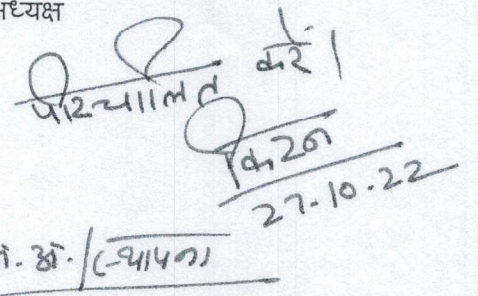 मध्यक्ष
परिचालित करें।
किरन
27.10.22
अ./स्थापना